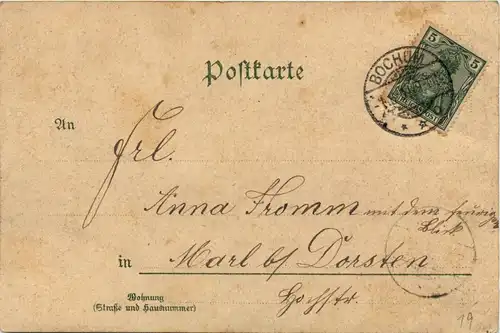 Postkarte
5
BOCHUM
An
Frl.
Anna Fromm mit dem feurigen
Blick
in Marl b/ Dorsten
Wohnung
(Straße und Hausnummer)
Hochstr.
19